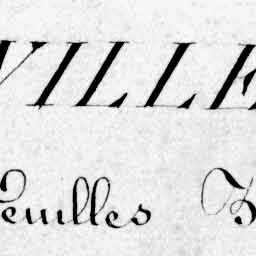 VILLE
euilles B